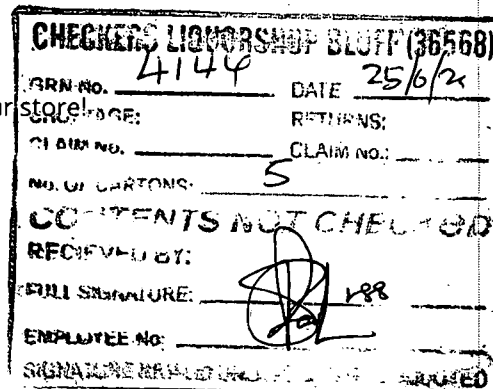 CHECKERS LIQUORSHOP BLUFF (36568)
GRN No. 4144 DATE 25/6/2
store!
RETURNS:
CLAIM No. CLAIM No.:
No. OF CARTONS: 5
CONTENTS NOT CHECKED
RECIEVED BY:
FULL SIGNATURE:
EMPLOYEE No:
SIGNATURE